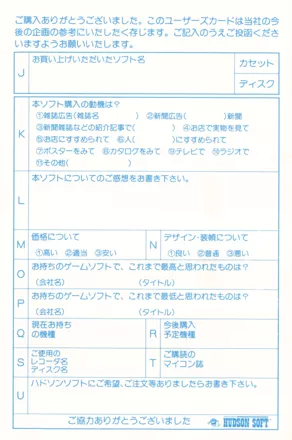 ご購入ありがとうございました。このユーザーズカードは当社の今
後の企画の参考にいたしたく存じます。ご記入のうえご投函くださ
いますようお願いいたします。
J お買い上げいただいたソフト名 カセット
ディスク
K 本ソフト購入の動機は？
①雑誌広告(雑誌名 ) ②新聞広告( )新聞
③新聞雑誌などの紹介記事で( ) ④お店で実物を見て
⑤お店にすすめられて ⑥人( )にすすめられて
⑦ポスターをみて ⑧カタログをみて ⑨テレビで ⑩ラジオで
⑪その他( )
L 本ソフトについてのご感想をお書き下さい。
M 価格について
①高い ②適当 ③安い
N デザイン・装幀について
①良い ②普通 ③悪い
O お持ちのゲームソフトで、これまで最高と思われたものは？
(会社名) (タイトル)
P お持ちのゲームソフトで、これまで最低と思われたものは？
(会社名) (タイトル)
Q 現在お持ち
の機種
R 今後購入
予定機種
S ご使用の
レコーダ名
ディスク名
T ご購読の
マイコン誌
U ハドソンソフトにご希望、ご注文等ありましたらお書き下さい。
ご協力ありがとうございました HUDSON SOFT